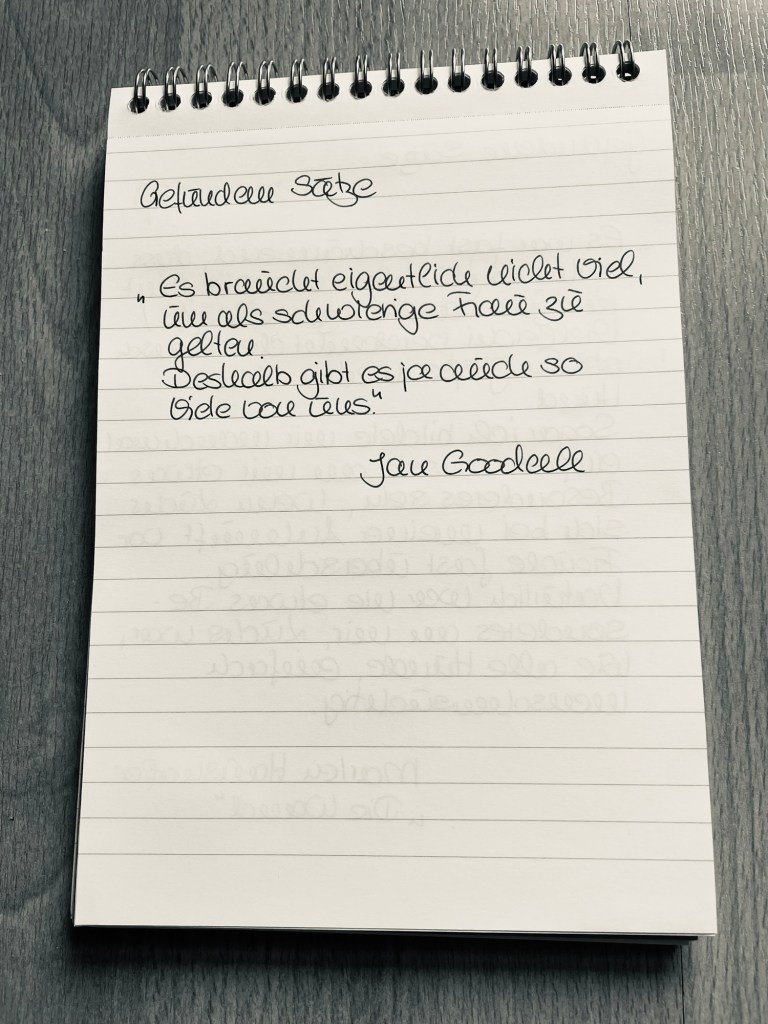 Gefundene Sätze
„Es braucht eigentlich nicht viel,
um als schwierige Frau zu
gelten.
Deshalb gibt es ja auch so
viele von uns."
Jane Goodall